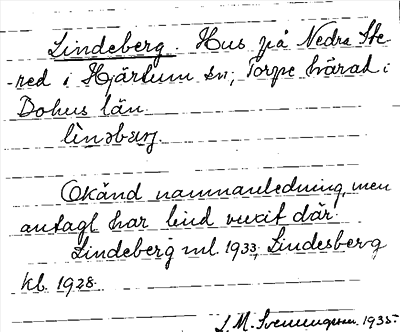 Lindeberg. Hus på Nedra Ste-
red i Hjärtum sn; Torpe härad i
Bohus län.
Okänd namnanledning, men
antagl har lind vuxit där.
Lindeberg ml. 1933, Lindesberg
kb. 1928.
J. M. Svenningsson. 1935.